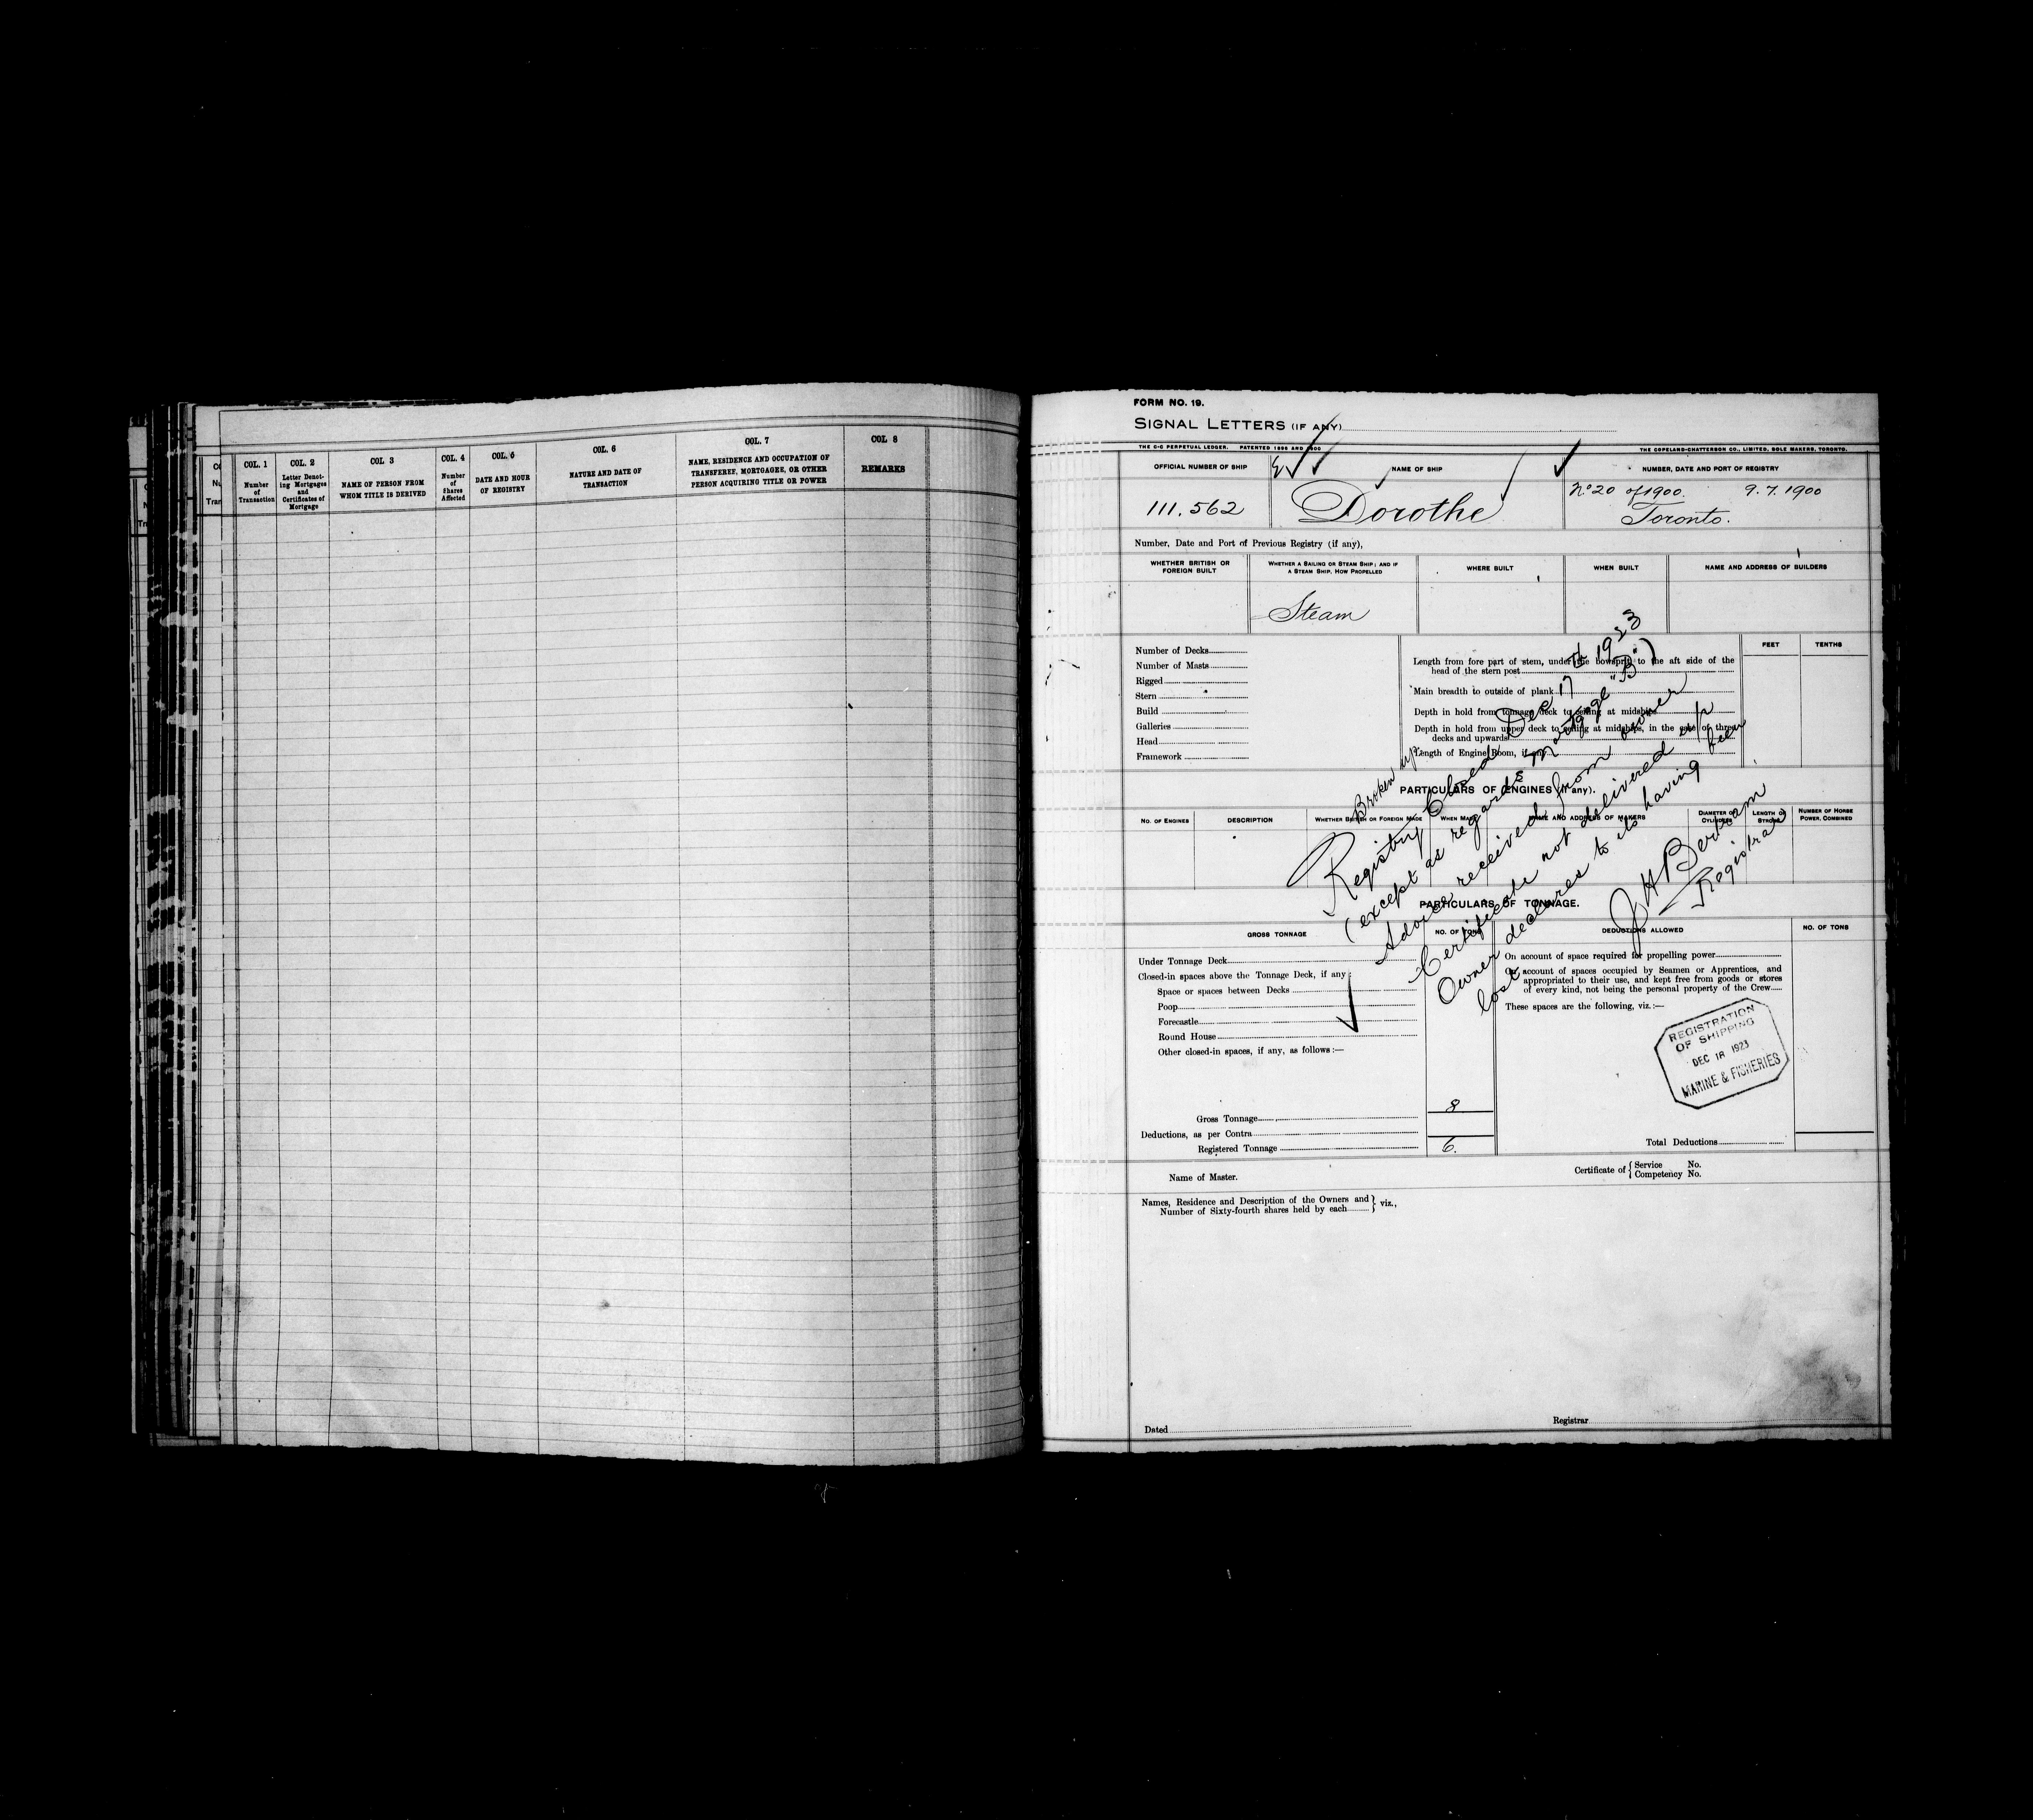 COL. 1
Number
of
Transaction
COL. 2
Letter Denot-
ing Mortgages
and
Certificates of
Mortgage
COL. 3
NAME OF PERSON FROM
WHOM TITLE IS DERIVED
COL. 4
Number
of
Shares
Affected
COL. 5
DATE AND HOUR
OF REGISTRY
COL. 6
NATURE AND DATE OF
TRANSACTION
COL. 7
NAME, RESIDENCE AND OCCUPATION OF
TRANSFEREE, MORTGAGEE, OR OTHER
PERSON ACQUIRING TITLE OR POWER
COL 8
REMARKS
FORM NO. 19.
SIGNAL LETTERS (IF ANY)
THE C-C PERPETUAL LEDGER. PATENTED 1896 AND 1900
THE COPELAND-CHATTERSON CO., LIMITED, SOLE MAKERS, TORONTO.
OFFICIAL NUMBER OF SHIP
NAME OF SHIP
NUMBER, DATE AND PORT OF REGISTRY
111.562
Dorothe
No 20 of 1900. 9.7.1900
Toronto.
Number, Date and Port of Previous Registry (if any),
WHETHER BRITISH OR
FOREIGN BUILT
WHETHER A SAILING OR STEAM SHIP; AND IF
A STEAM SHIP, HOW PROPELLED
WHERE BUILT
WHEN BUILT
NAME AND ADDRESS OF BUILDERS
Steam
Number of Decks
Number of Masts
Rigged
Stern
Build
Galleries
Head
Framework
FEET
TENTHS
Length from fore part of stem, under the bowsprit to the aft side of the
head of the stern post
Main breadth to outside of plank
Depth in hold from tonnage deck to ceiling at midships
Depth in hold from upper deck to ceiling at midships, in the case of three
decks and upwards
Length of Engine Room, if any
Broken up
Registry Closed Dec 17th 1923
(except as regards Mortgage "B")
Advice received from owner
Certificate not delivered up
Owner declares to its having been
lost
J H Bertram
Registrar
PARTICULARS OF ENGINES (if any).
NO. OF ENGINES
DESCRIPTION
WHETHER BRITISH OR FOREIGN MADE
WHEN MADE
NAME AND ADDRESS OF MAKERS
DIAMETER OF
CYLINDERS
LENGTH OF
STROKE
NUMBER OF HORSE
POWER, COMBINED
PARTICULARS OF TONNAGE.
GROSS TONNAGE
NO. OF TONS
DEDUCTIONS ALLOWED
NO. OF TONS
Under Tonnage Deck
Closed-in spaces above the Tonnage Deck, if any:
Space or spaces between Decks
Poop
Forecastle
Round House
Other closed-in spaces, if any, as follows:—
Gross Tonnage 8
Deductions, as per Contra
Registered Tonnage 6.
On account of space required for propelling power
On account of spaces occupied by Seamen or Apprentices, and
appropriated to their use, and kept free from goods or stores
of every kind, not being the personal property of the Crew
These spaces are the following, viz.:—
REGISTRATION
OF SHIPPING
DEC 18 1923
MARINE & FISHERIES
Total Deductions
Name of Master.
Certificate of { Service No.
Competency No.
Names, Residence and Description of the Owners and
Number of Sixty-fourth shares held by each } viz.,
Dated
Registrar